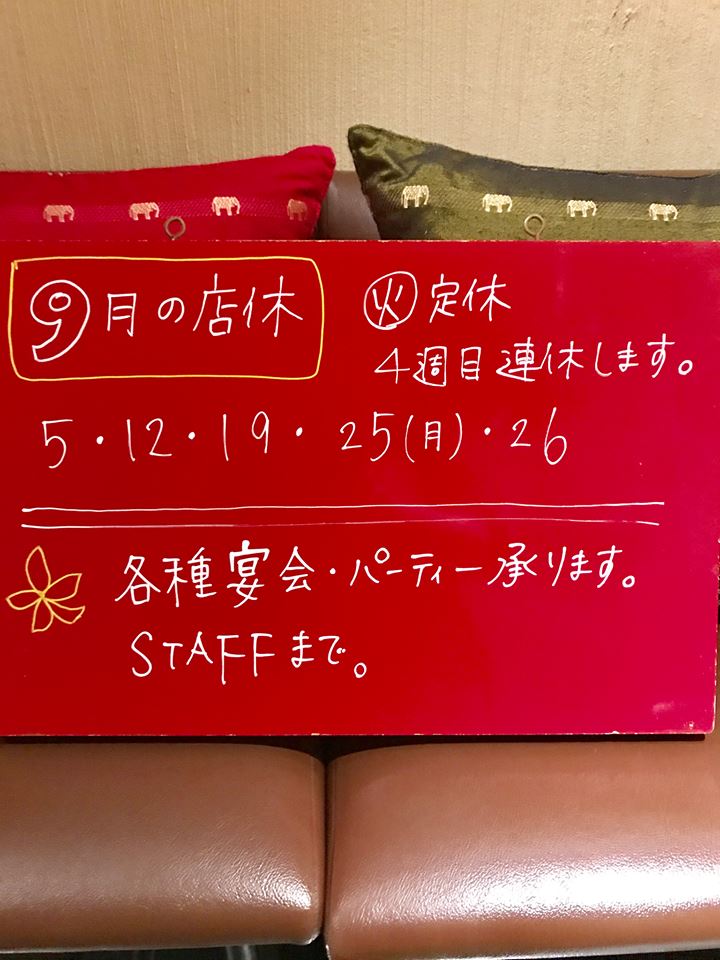 9月の店休
㊋定休
4週目連休します。
5・12・19・25(月)・26
各種宴会・パーティー承ります。
STAFFまで。